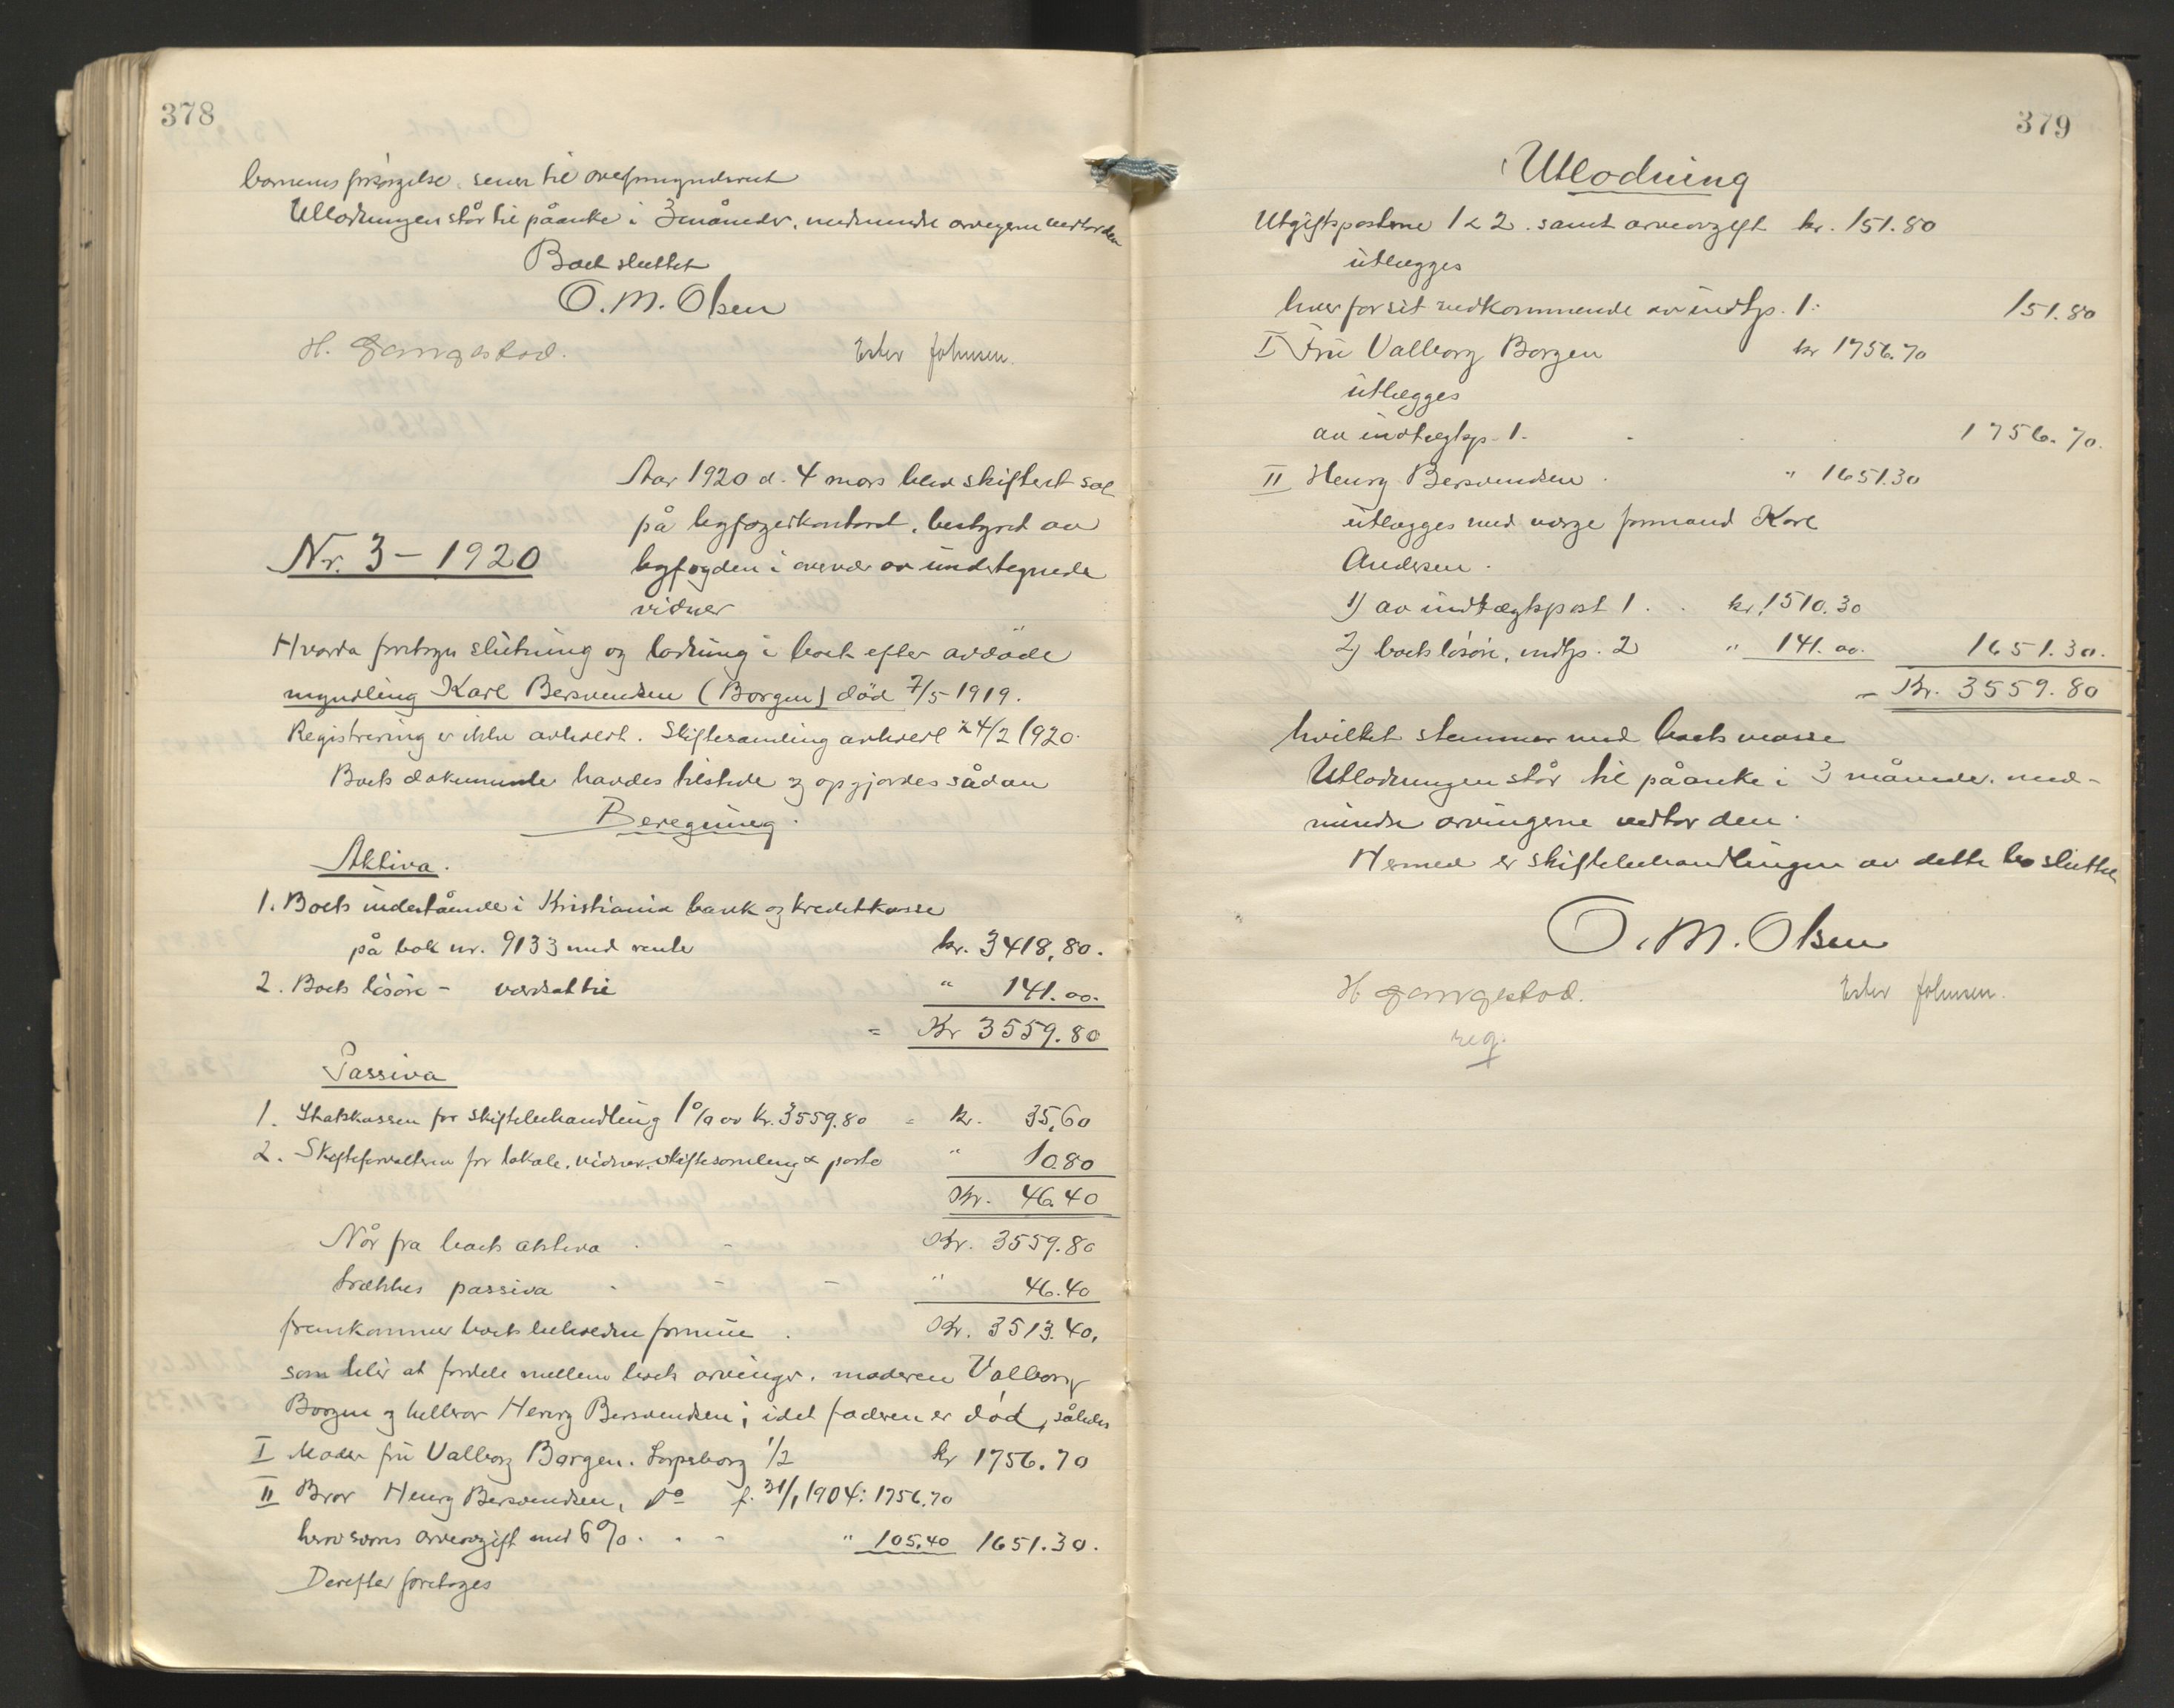 378
barnenes forsørgelse, senen til overformynderiet
Utlodningen står til påanke i 3 måneder, medmindre arvingerne vedtar den
Boet sluttet
O. M. Olsen
H. Ester Johnsen.
Aar 1920 d. 4 mars blev skifteret sat
på byfogedkontoret, bestyret av
Nr. 3 – 1920
byfogden i overvær av undertegnede
vidner
Hvorda foretoges slutning og lodning i boet efter avdøde
myndling Karl Bersvendsen (Borgen) død 7/5 1919.
Registrering er ikke avholdt. Skiftesamling avholdt 24/2 1920.
Boets dokumenter havdes tilstede og opgjordes sådan
Beregning.
Aktiva.
1. Boets indestående i Kristiania bank og kreditkasse
på bok nr. 9133 med rente kr. 3418,80.
2. Boets løsøre – værdsat til " 141.00.
= Kr 3559.80
Passiva
1. Statskassen for skiftebehandling 1% av kr. 3559.80 = kr. 35,60
2. Skifteforvalteren for lokale, vidner, skiftesamling & porto " 10.80
Kr. 46.40
Når fra boets aktiva - Kr. 3559.80
trækkes passiva - - " 46.40
fremkommer boets beholdne formue . Kr. 3513.40,
som blir at fordele mellem boets arvinger, moderen Valborg
Borgen og helbror Henry Bersvendsen, idet faderen er død, således
I Moder fru Valborg Borgen. Sarpsborg 1/2 kr 1756.70
II Bror Henry Bersvendsen, do f. 31/1 1904: 1756.70
herav svares arveavgift med 6%. . - " 105,40 1651.30.
Derefter foretoges
379
Utlodning
Utgiftsposterne 1 & 2. samt arveavgift kr. 151.80
utlægges
hver for sit vedkommende av indtgp. 1: 151.80
I Fru Valborg Borgen kr 1756.70
utlægges
av indtægtsp. 1. 1756.70.
II Henry Bersvendsen . " 1651.30
utlægges med værge formand Karl
Andersen.
1) av indtægtspost 1 . . kr. 1510.30
2) boets løsøre, indtgp. 2 " 141.00. 1651.30.
= Kr. 3559.80
hvilket stemmer med boets masse
Utlodningen står til påanke i 3 måneder. med-
mindre arvingerne vedtar den.
Hermed er skiftebehandlingen av dette bo sluttet
O. M. Olsen
H. Ester Johnsen.